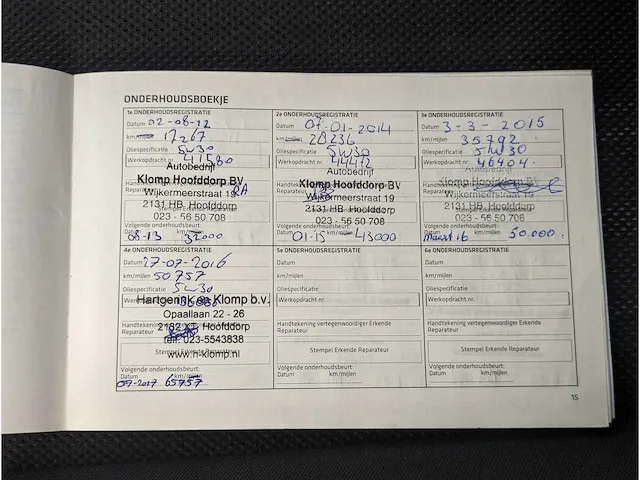 ONDERHOUDSBOEKJE
1e ONDERHOUDSREGISTRATIE
Datum 02-08-12
km/mijlen 17267
Oliespecificatie 5w30
Werkopdracht nr. 41580
Autobedrijf
Klomp Hoofddorp BV
Wijkermeerstraat 19
2131 HB Hoofddorp
023 - 56 50 706
Volgende onderhoudsbeurt:
Datum km/mijlen
08-13 32000
2e ONDERHOUDSREGISTRATIE
Datum 07-01-2014
km/mijlen 28236
Oliespecificatie 5w30
Werkopdracht nr. 44412
Autobedrijf
Klomp Hoofddorp BV
Wijkermeerstraat 19
2131 HB Hoofddorp
023 - 56 50 706
Volgende onderhoudsbeurt:
Datum km/mijlen
01-15 43000
3e ONDERHOUDSREGISTRATIE
Datum 3-3-2015
km/mijlen 35792
Oliespecificatie 5W30
Werkopdracht nr. 46404
Autobedrijf
Klomp Hoofddorp BV
Wijkermeerstraat 19
2131 HB Hoofddorp
023 - 56 50 706
Volgende onderhoudsbeurt:
Datum km/mijlen
Maart 16 50.000
4e ONDERHOUDSREGISTRATIE
Datum 27-07-2016
km/mijlen 50757
Oliespecificatie 5w30
Werkopdracht nr.
Hartgerink de Klomp b.v.
Opaallaan 22 - 26
Handtekening vertegenwoordiger Erkende
Reparateur
2132 XT Hoofddorp
tel. 023-5543838
Stempel Erkende Reparateur
www.h-klomp.nl
Volgende onderhoudsbeurt:
Datum km/mijlen
07-2017 65757
5e ONDERHOUDSREGISTRATIE
Datum
km/mijlen
Oliespecificatie
Werkopdracht nr.
Handtekening vertegenwoordiger Erkende
Reparateur
Stempel Erkende Reparateur
Volgende onderhoudsbeurt:
Datum km/mijlen
6e ONDERHOUDSREGISTRATIE
Datum
km/mijlen
Oliespecificatie
Werkopdracht nr.
Handtekening vertegenwoordiger Erkende
Reparateur
Stempel Erkende Reparateur
Volgende onderhoudsbeurt:
Datum km/mijlen
15